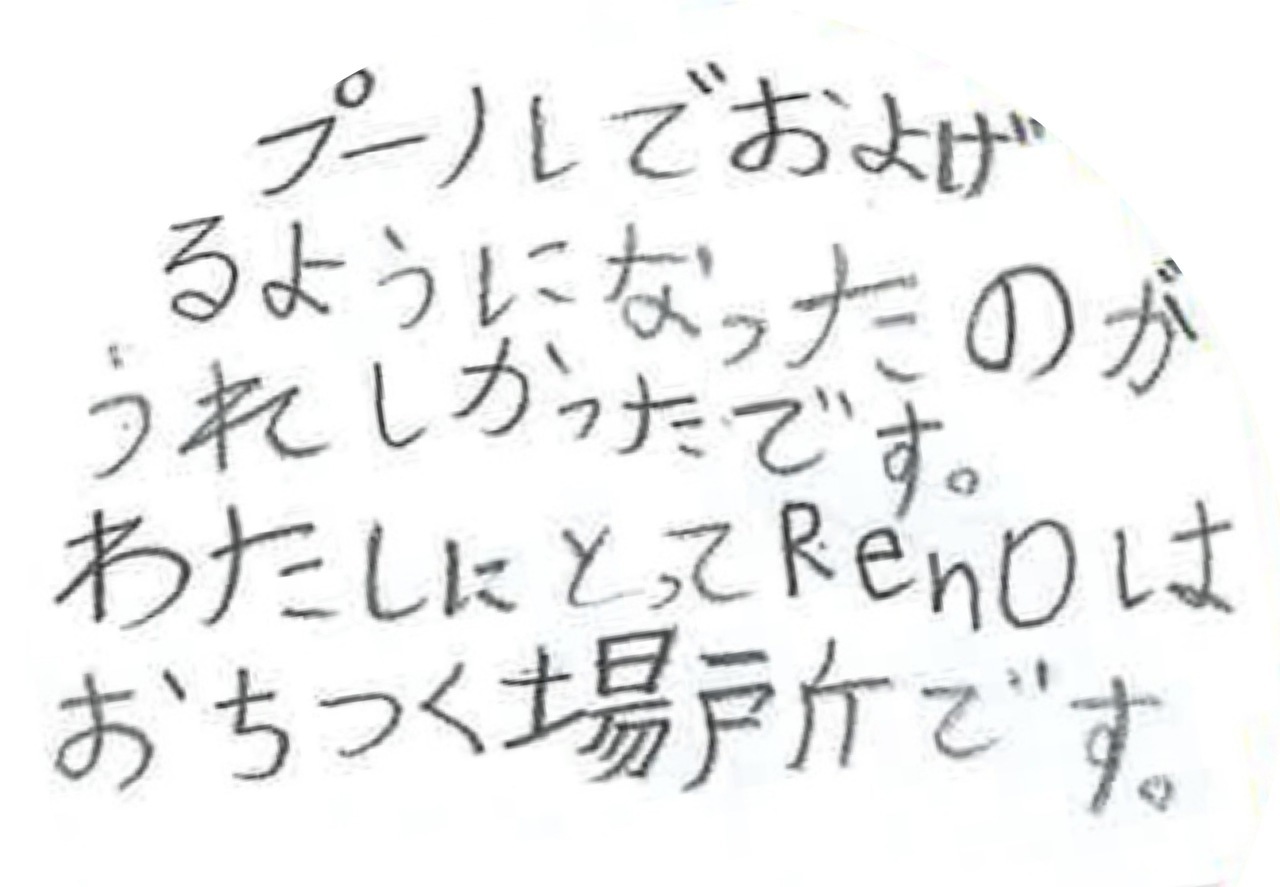 プールでおよげ
るようになったのが
うれしかったです。
わたしにとってRenOは
おちつく場所です。